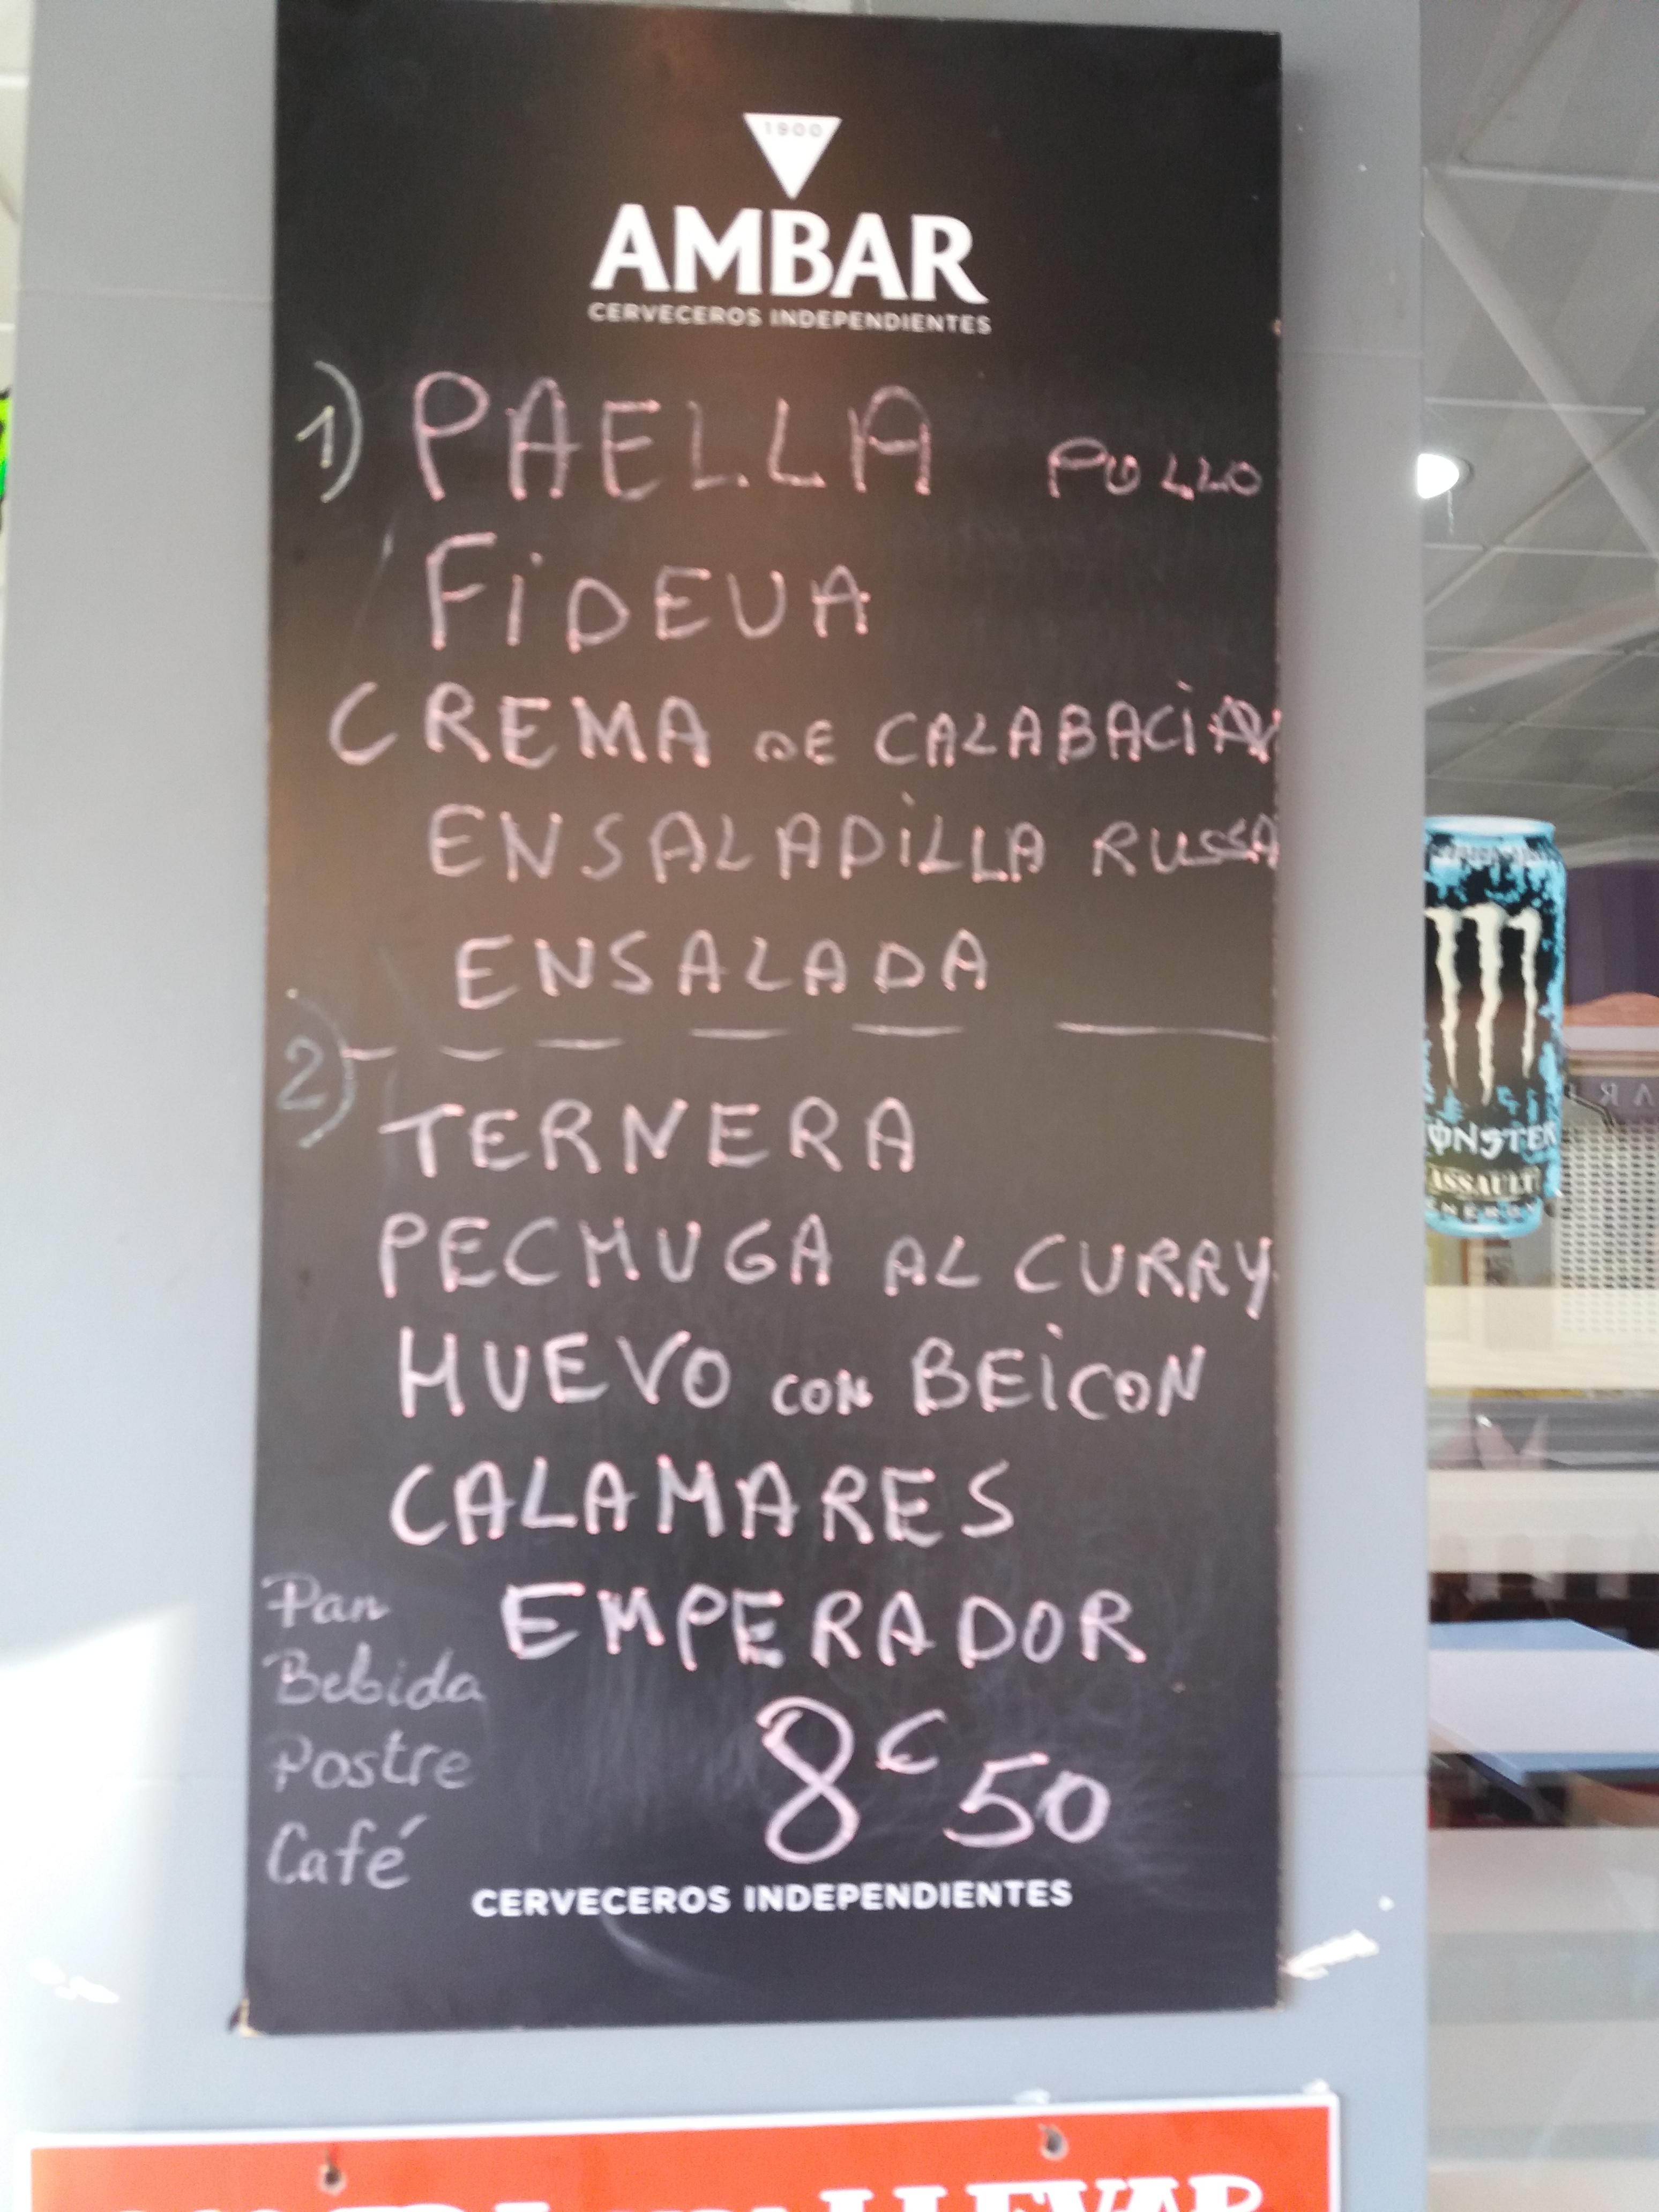 1900
AMBAR
CERVECEROS INDEPENDIENTES
1) PAELLA POLLO
FiDEUA
CREMA DE CALABACiN
ENSALADiLLA RUSSA
ENSALADA
2)
TERNERA
PECHUGA AL CURRY
HUEVO CON BEiCON
CALAMARES
EMPERADOR
Pan
Bebida
Postre
Café
8€50
CERVECEROS INDEPENDIENTES
MONSTER
ASSAULT
ENERGY
LLEVAR